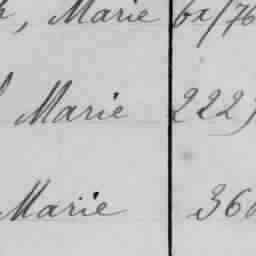 , Marie 6a/76
Marie 222
Marie 36